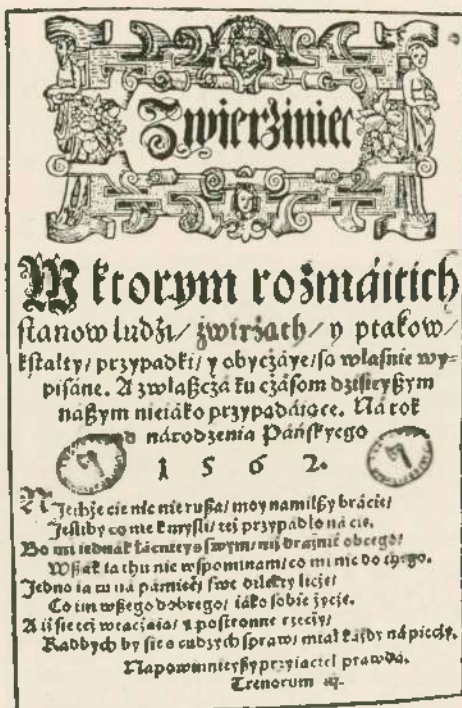 Zwierżiniec
W ktorym rozmáitich
stanow ludżi / żwirżąth / y ptakow /
kstałty / przypadki / y obyczáye / są własnie wy-
pisáne. A zwłaßcżá ku cżásom dzisieyßym
náßym nieiáko przypadáiące. Ná rok
od národzenia Páńskyego
1 5 6 2 .
Niechże cie nic nie rußa / moy namilßy brácie /
Jesliby co nie k mysli / tej przypadło ná cie.
Bo mi iednák łácniey o swym / niż drażnić obcego /
Wßák ia thu nie wspominam / co mi nic do tego.
Jedno ia tu ná pámięć / swe
Co im wßego dobrego / iáko sobie życżę.
A iż sie tej wtacżáią / y postronne rzecży /
Radbych by sie o cudzych spraw / miał káżdy ná piecży.
Napowinnieyßy przyiaciel prawdá.
Trenorum